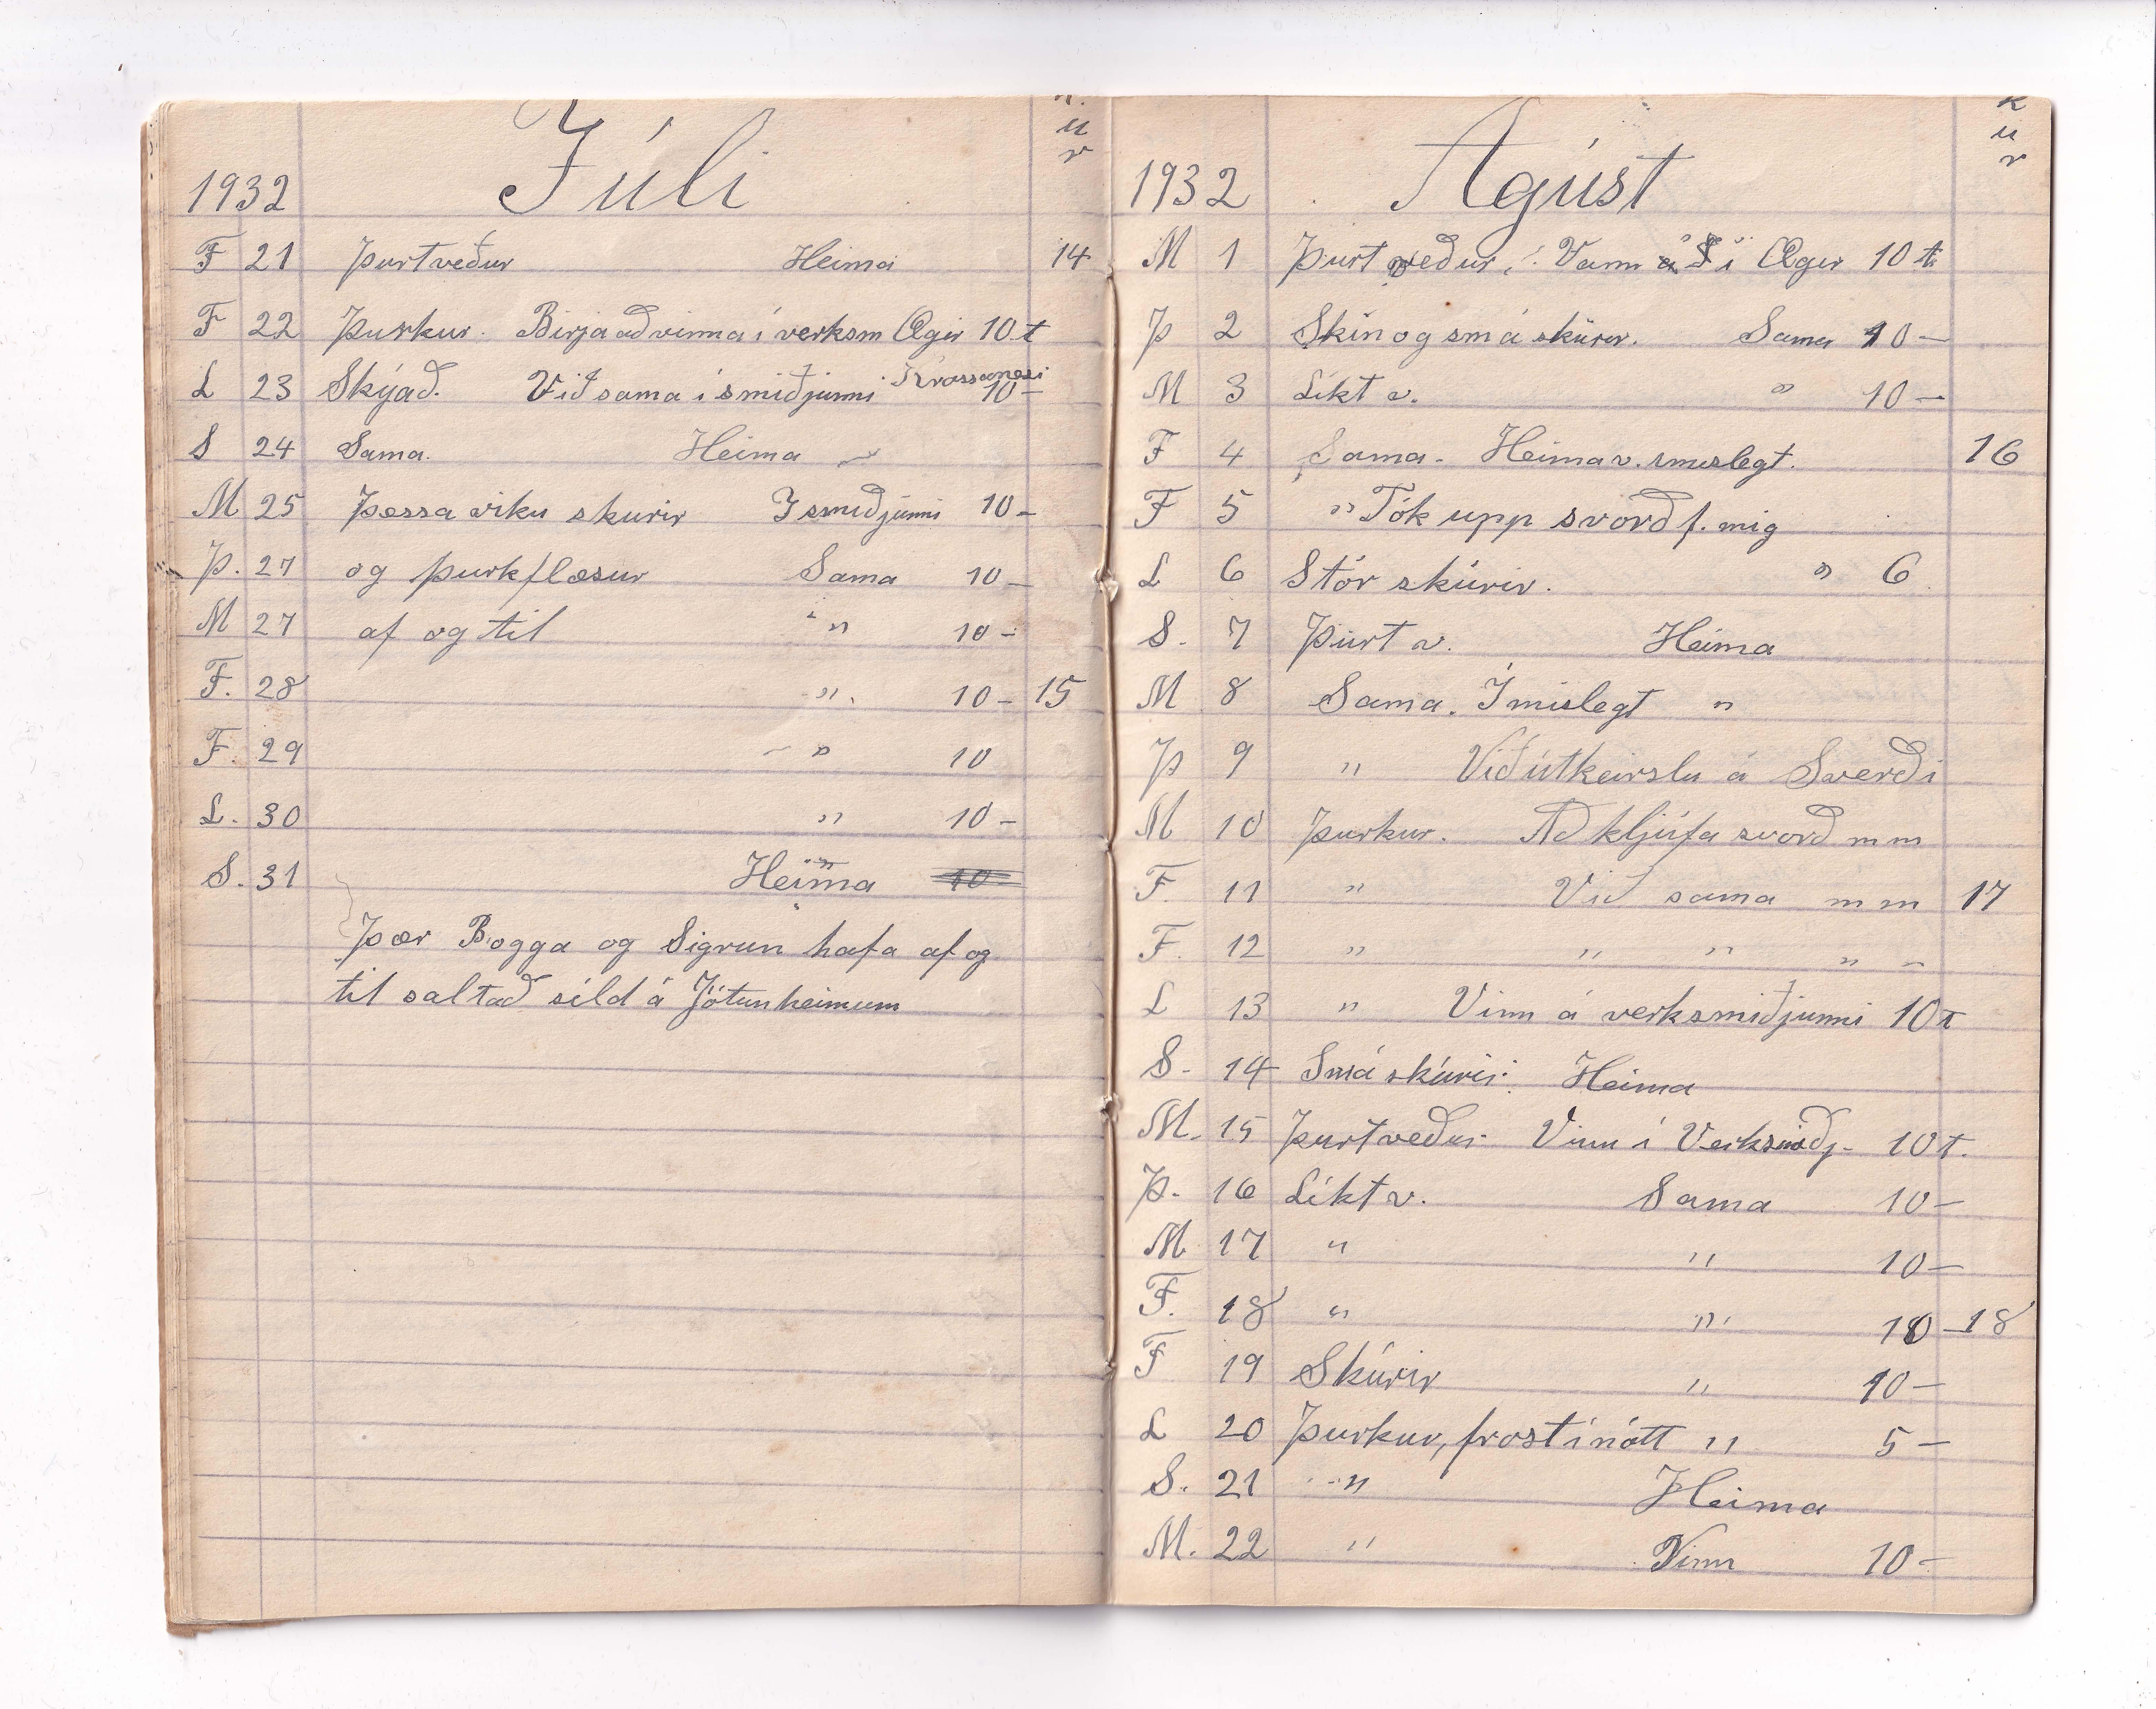 u
r
1932 Júli
F 21 Þurtveður Heima 14
F 22 Þurkur. Birja að vinna í verksm Ægir 10 t
Krossanesi
L 23 Skýað. Við sama í smiðjunni 10 -
S 24 Sama. Heima
M 25 Þessa viku skurir I smiðjunni 10 -
Þ. 27 og þurkflæsur Sama 10 -
M 27 af og til " 10 -
F. 28 " 10 - 15
F. 29 " 10
L. 30 " 10 -
S. 31 Heima 10
Þær Bogga og Sigrun hafa af og
til saltað síld á Jötunheimum
k
u
r
1932 Ágúst
M 1 Þurt veður, Vann í Ægir 10 t
Þ 2 Skin og smá skúrir. Sama 10 -
M 3 Líkt v. " 10 -
F 4 Sama - Heima v. imislegt. 16
F 5 " Tók upp svorð f. mig
L 6 Stór skúrir. " 6
S. 7 Þurt v. Heima
M 8 Sama. Imislegt "
Þ 9 " Við útkeirslu á Sverði
M 10 Þurkur. Að kljúfa svorð m m
F. 11 " Við sama m m 17
F. 12 " " " " "
L 13 " Vinn á verksmiðjunni 10 t
S - 14 Smá skúrir. Heima
M. 15 Þurtveður Vinn í Verksmiðj - 10 t.
Þ. 16 Líkt v. Sama 10 -
M 17 " " 10 -
F. 18 " " 10 - 18
F 19 Skúrir " 10 -
L 20 Þurkur, frost í nótt " 5 -
S. 21 " Heima
M. 22 " Vinn 10 -